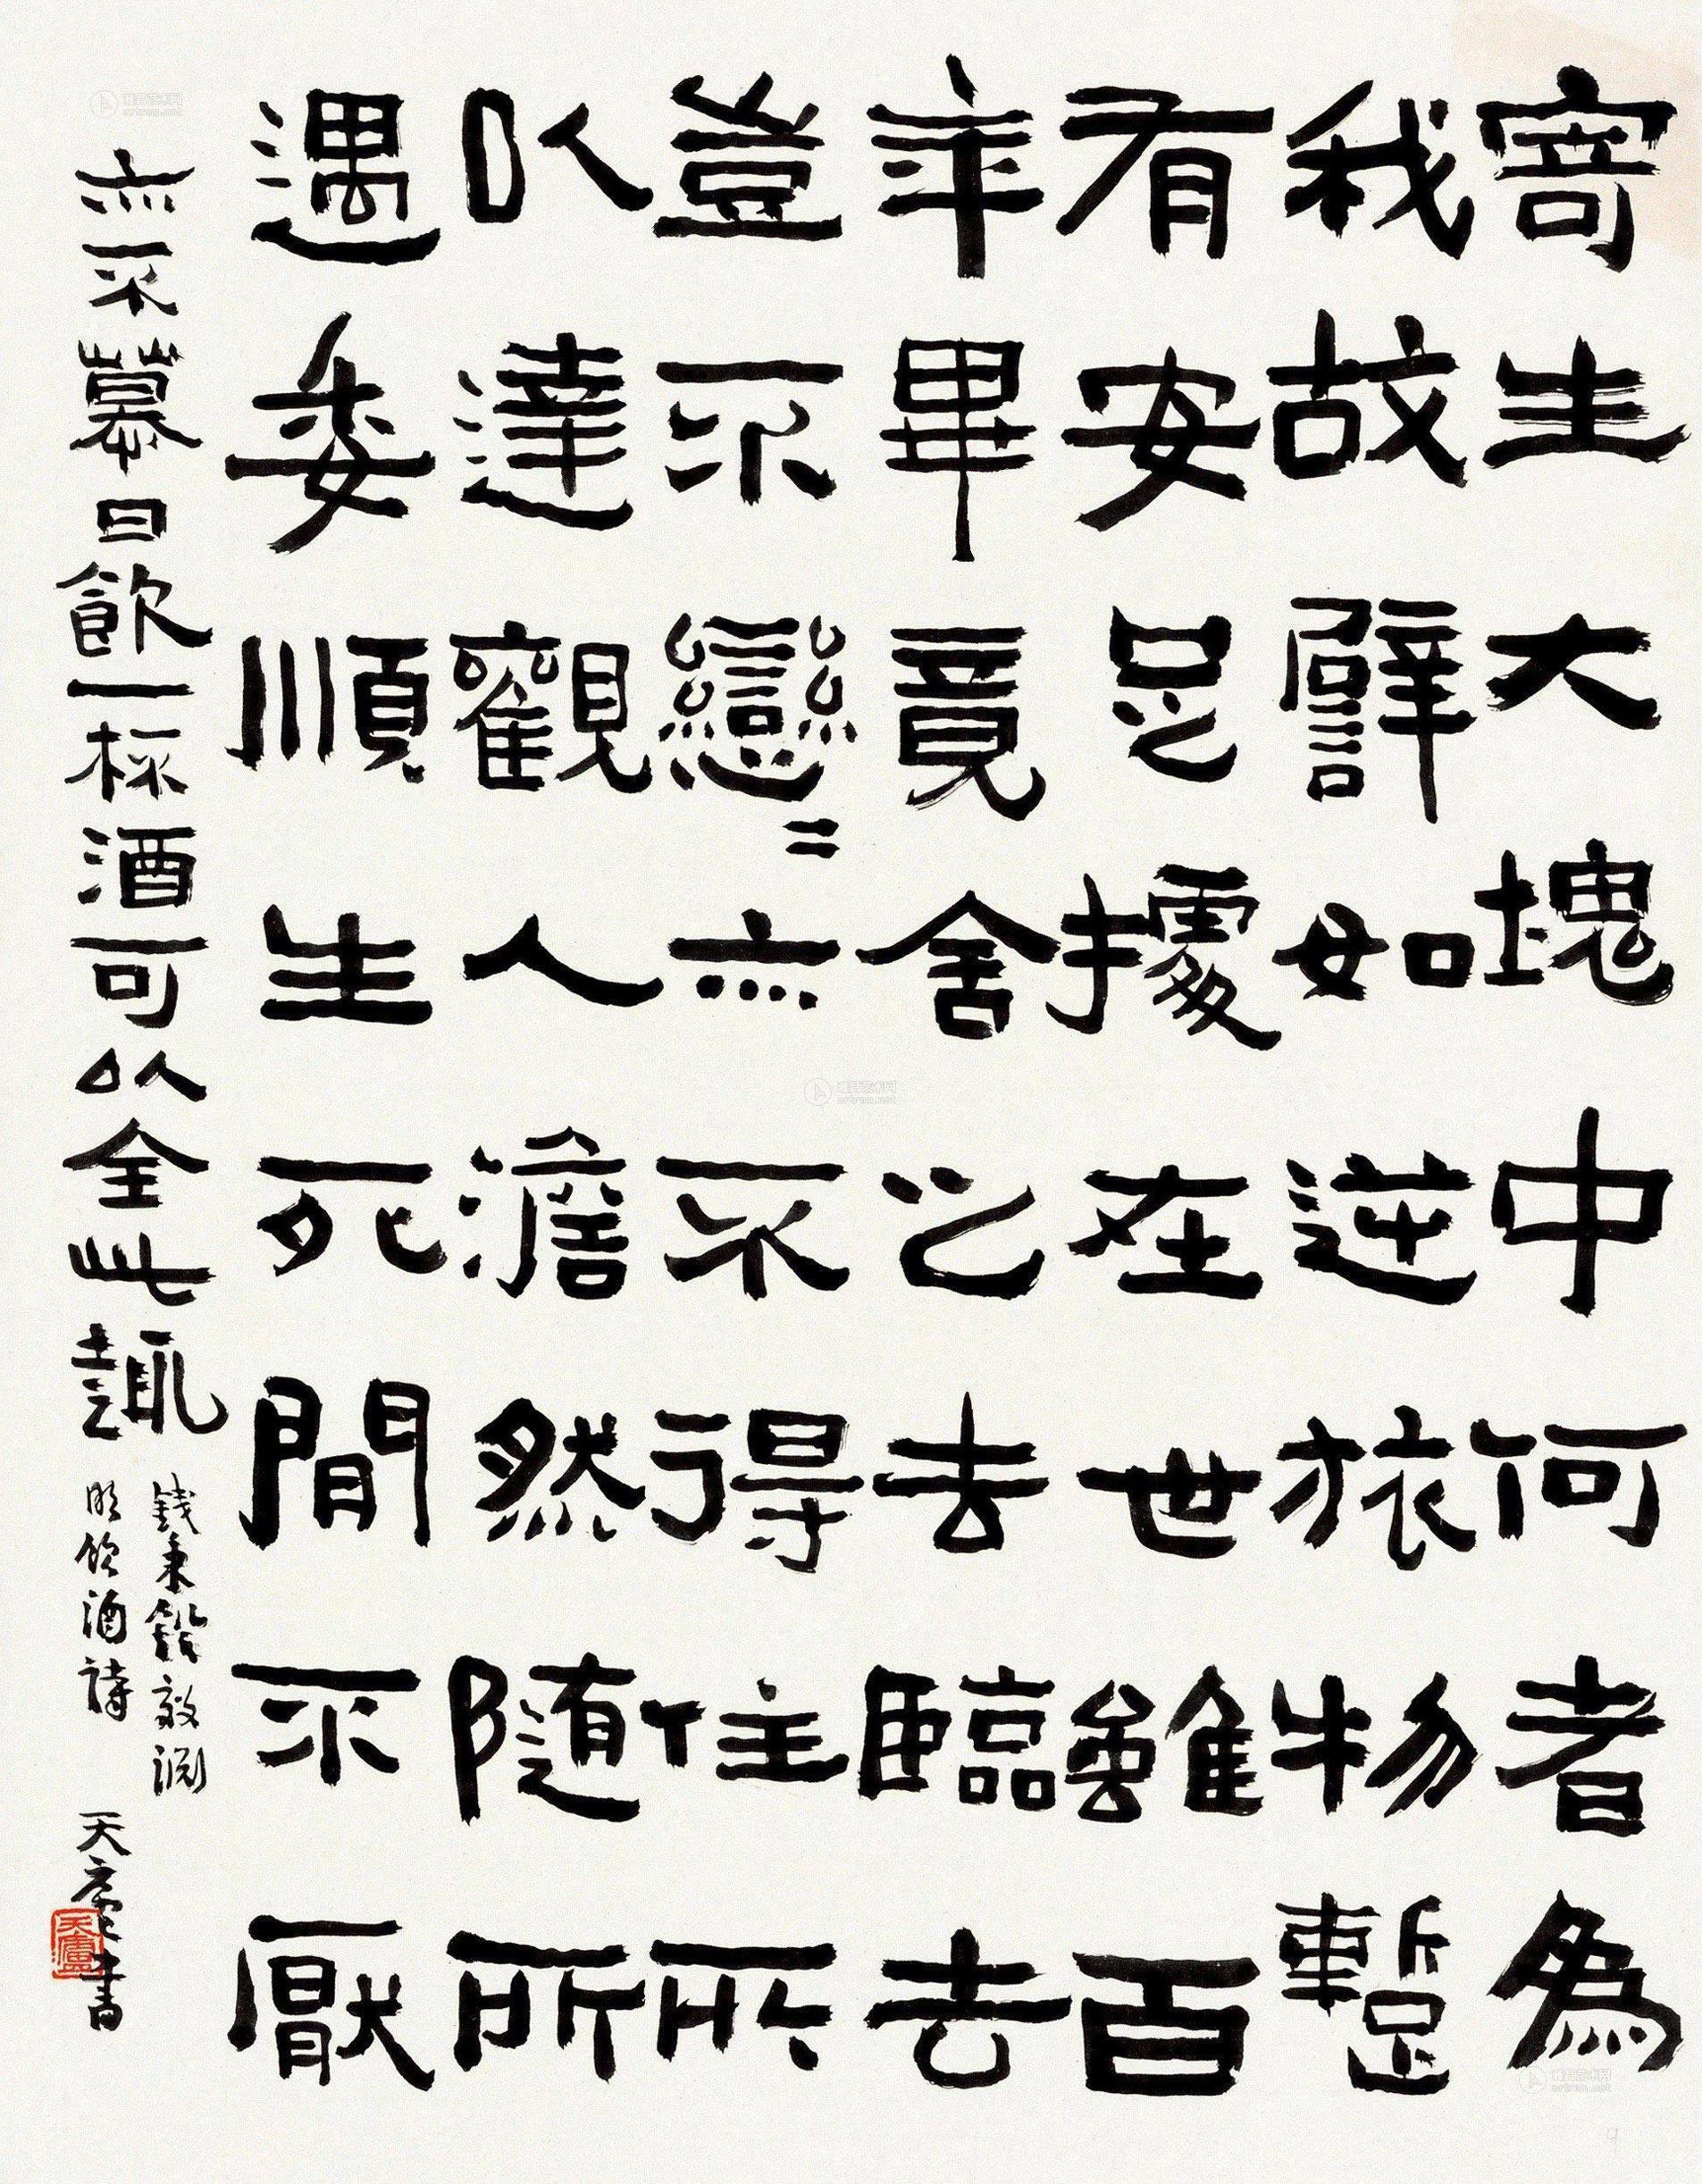 寄生大塊中何者為
我故譬如逆旅物暫
有安足據在世雖百
年畢竟舍之去臨去
豈不戀〻亦不得住所
以達觀人澹然隨所
遇委順生死間不厭
亦不慕日飲一杯酒可以全此趣
錢秉鐙效淵
明飲酒詩 天廬書
天廬